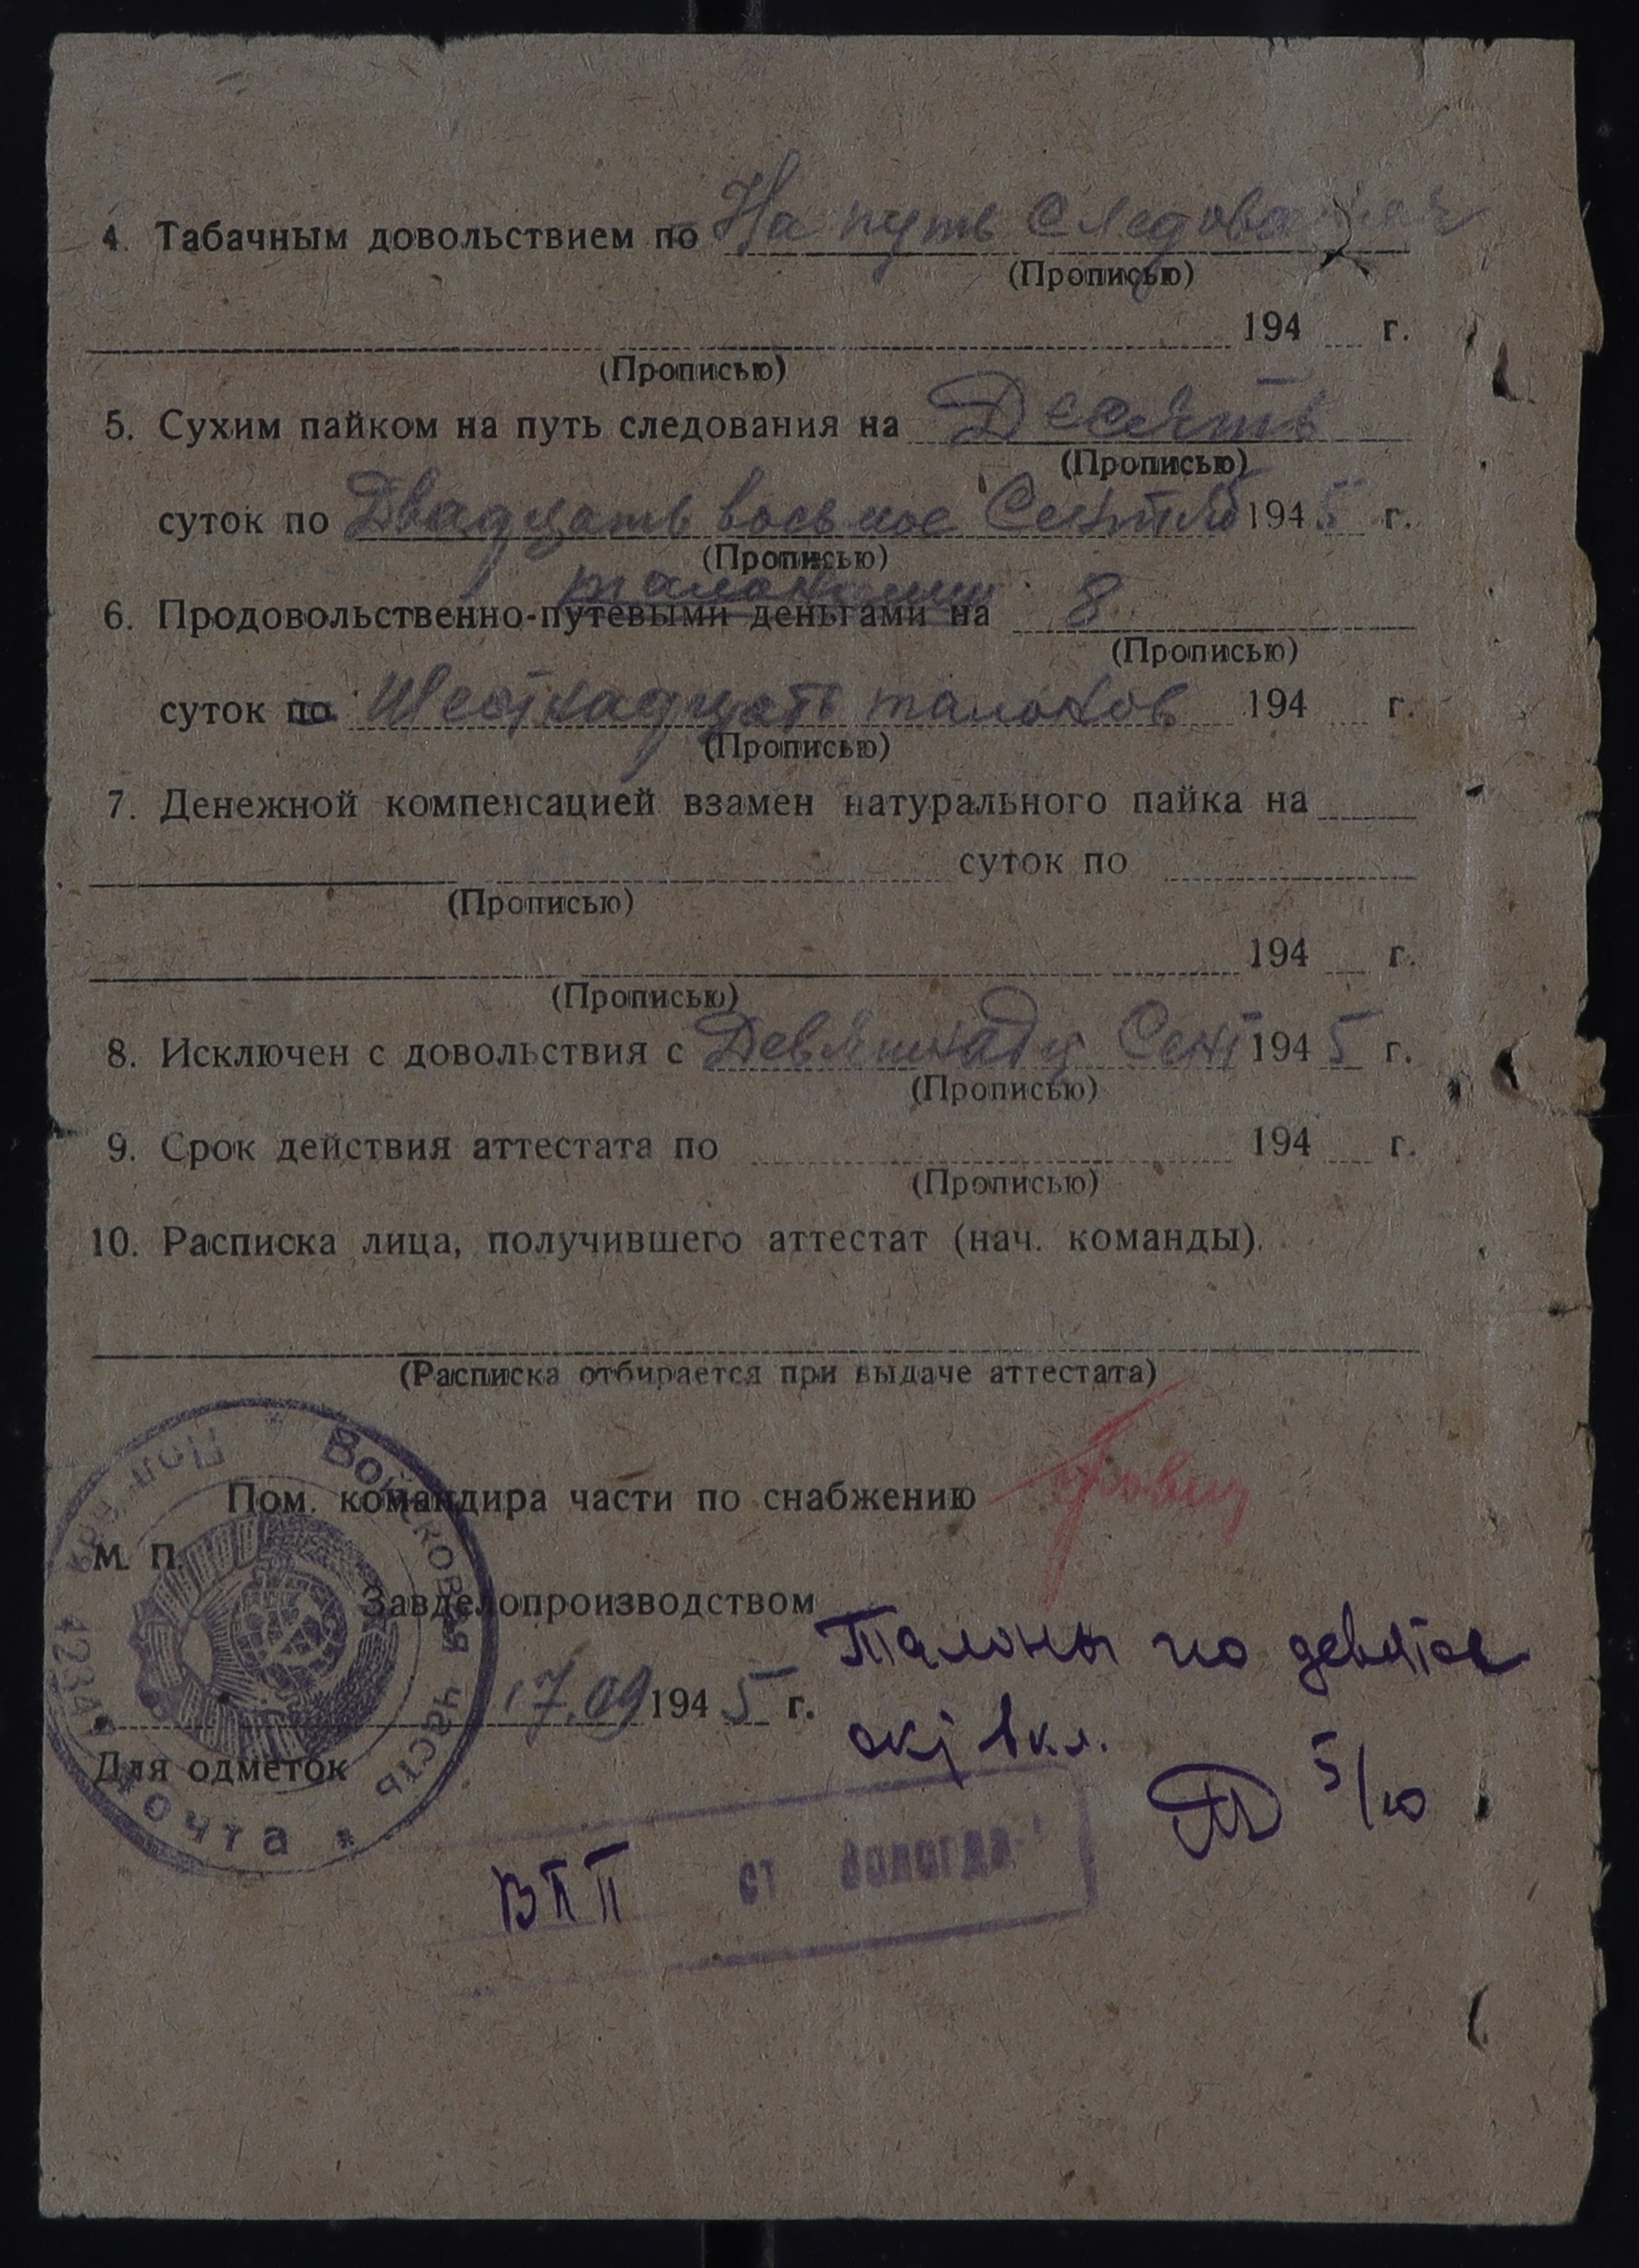 4. Табачным довольствием по На путь следования
(Прописью)
194 г.
(Прописью)
5. Сухим пайком на путь следования на Десять
(Прописью)
суток по Двадцать восьмое Сентяб 1945 г.
(Прописью)
талонами
6. Продовольственно-путевыми деньгами на 8
(Прописью)
суток по Шестнадцать талонов 194 г.
(Прописью)
7. Денежной компенсацией взамен натурального пайка на
суток по
(Прописью)
194 г.
(Прописью)
8. Исключен с довольствия с Девятнадц Сент 1945 г.
(Прописью)
9. Срок действия аттестата по 194 г.
(Прописью)
10. Расписка лица, получившего аттестат (нач. команды).
(Расписка отбирается при выдаче аттестата)
Войсковая часть * Полевая почта *
Пом. командира части по снабжению
М. П.
Завделопроизводством
Талоны по девятое
17.09 1945 г.
окт вкл.
Для отметок
5/10
ВПП ст Вологда